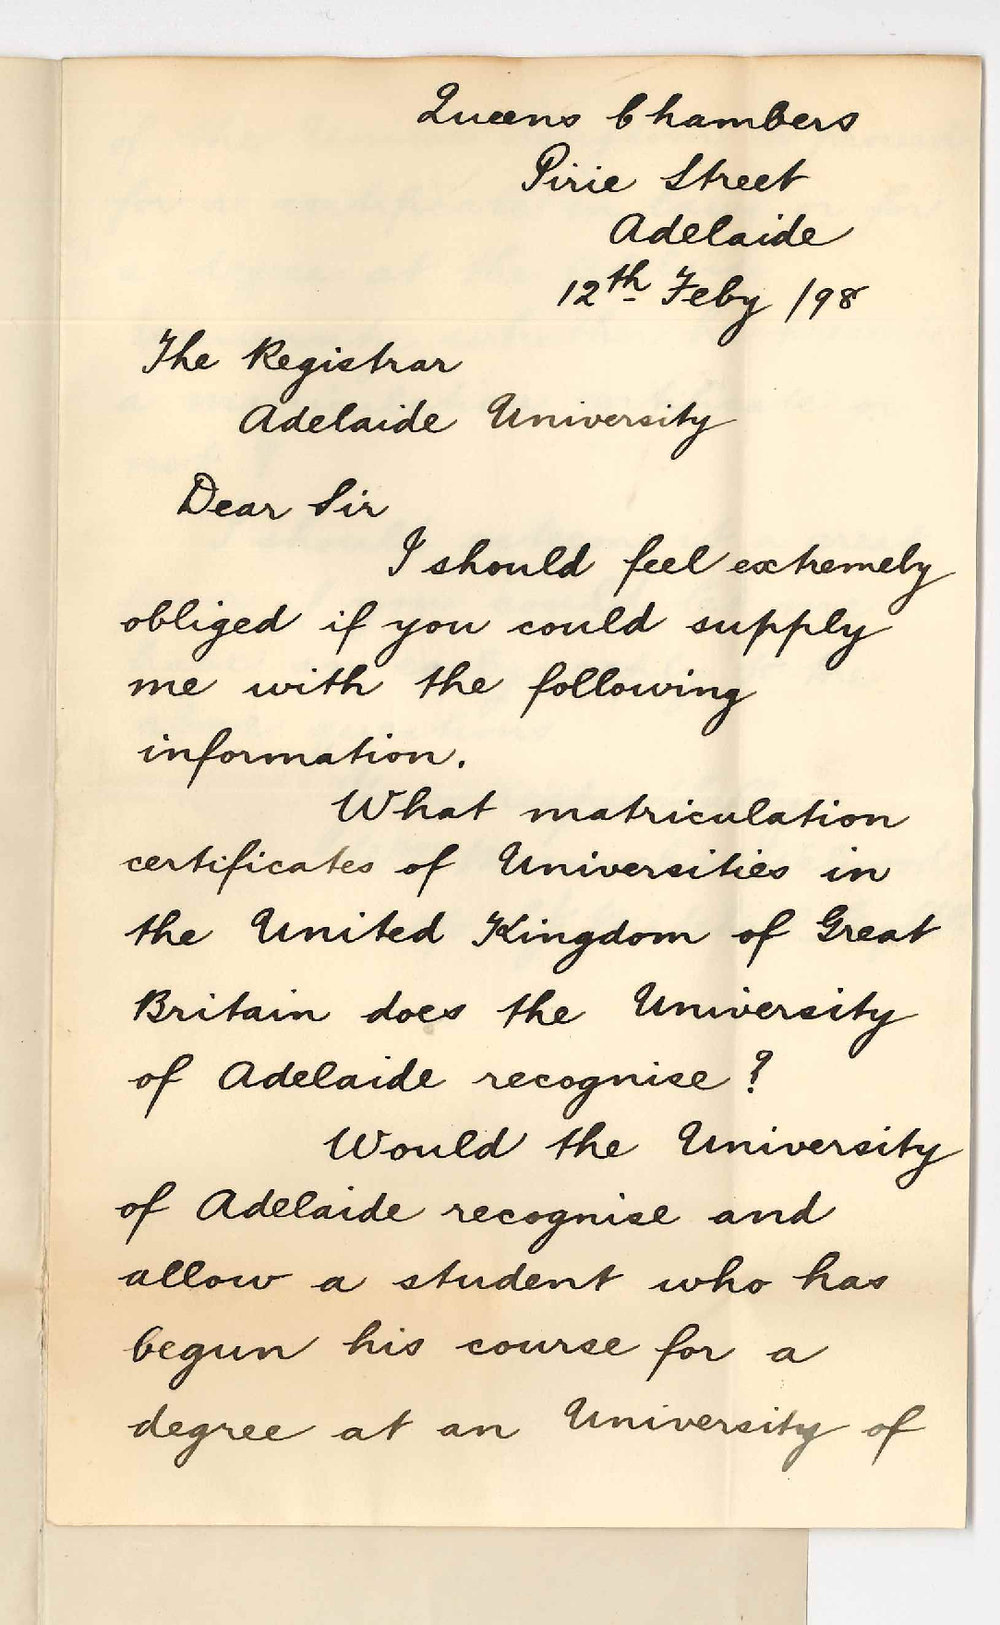 Queens Chambers
Pirie Street
Adelaide
12th Feby /98
The Registrar
Adelaide University
Dear Sir
I should feel extremely
obliged if you could supply
me with the following
information.
What matriculation
certificates of Universities in
the United Kingdom of Great
Britain does the University
of Adelaide recognise ?
Would the University
of Adelaide recognise and
allow a student who has
begun his course for a
degree at an University of